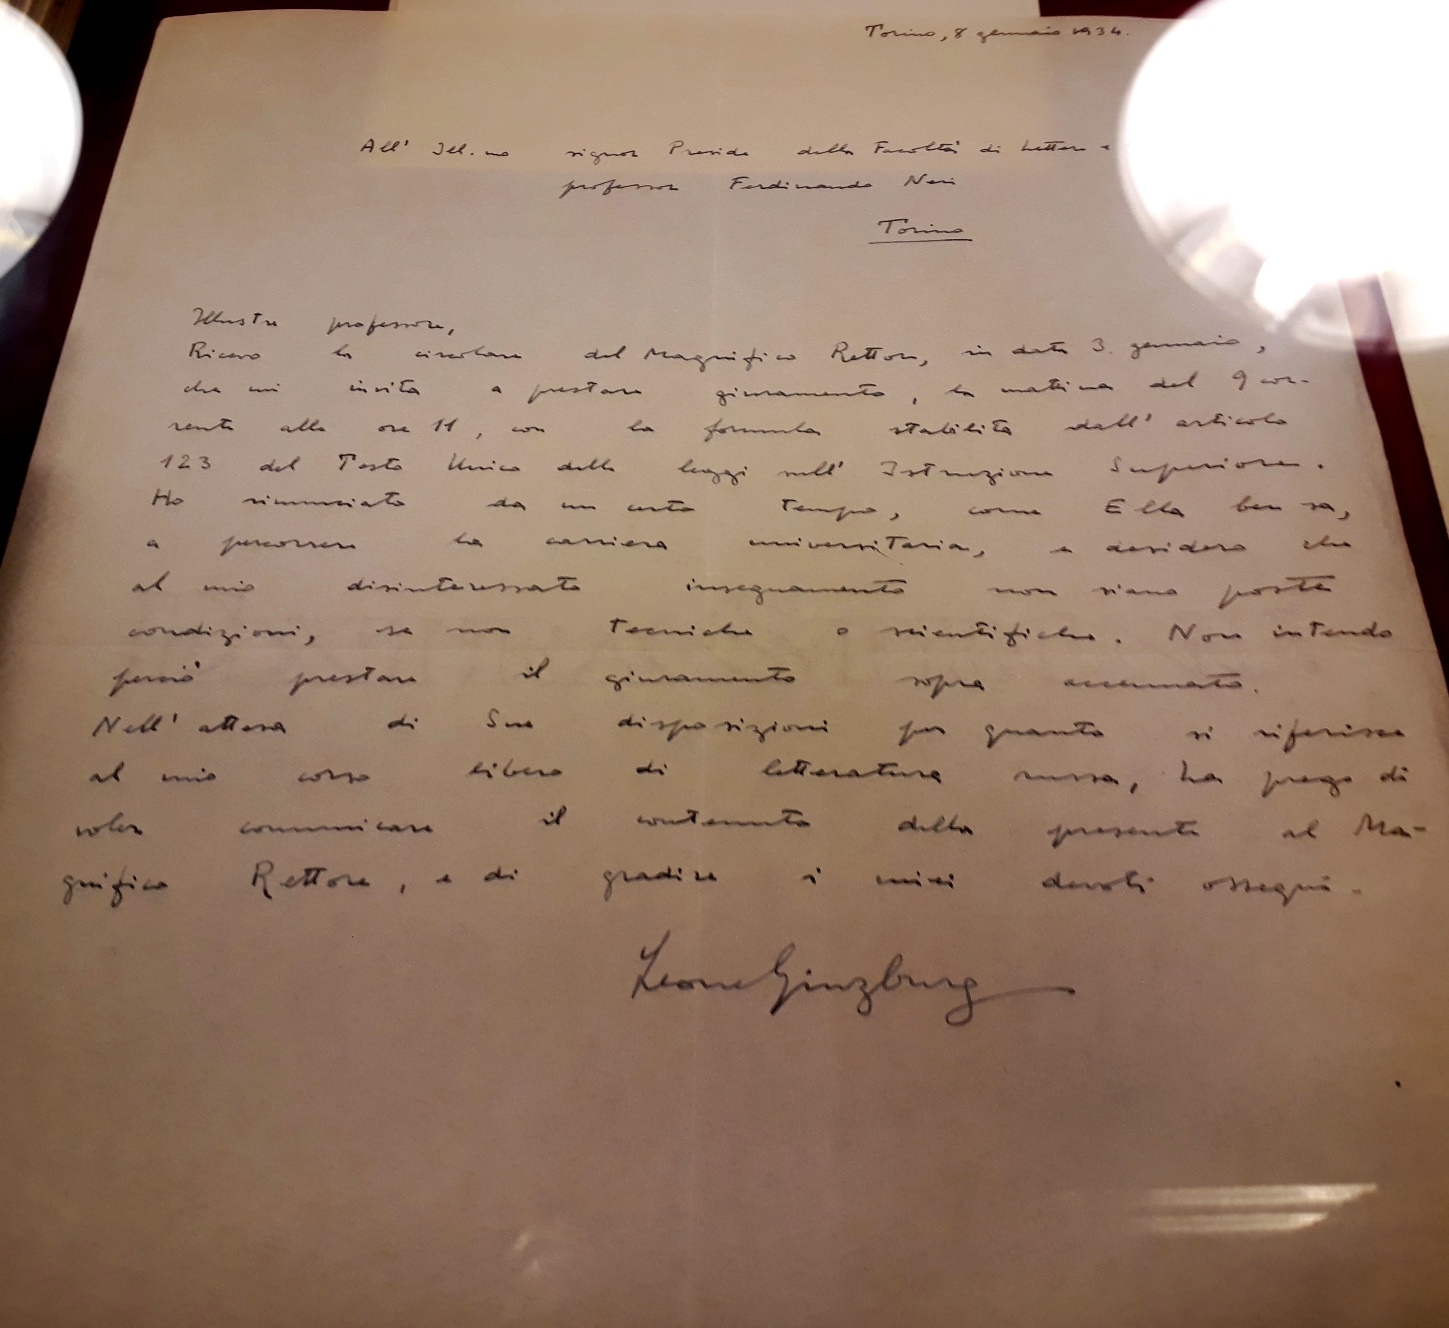 Torino, 8 gennaio 1934.
All' Ill.mo signor Preside della Facoltà di Lettere e
professor Ferdinando Neri
Torino
Illustre professore,
Ricevo la circolare del Magnifico Rettore, in data 3 gennaio,
che mi invita a prestare giuramento, la mattina del 9 cor-
rente alle ore 11, con la formula stabilita dall' articolo
123 del Testo Unico delle leggi sull' Istruzione Superiore.
Ho rinunciato da un certo tempo, come Ella ben sa,
a percorrere la carriera universitaria, e desidero che
al mio disinteressato insegnamento non siano poste
condizioni, se non tecniche o scientifiche. Non intendo
perciò prestare il giuramento sopra accennato.
Nell' attesa di Sue disposizioni per quanto si riferisce
al mio corso libero di letteratura russa, La prego di
voler comunicare il contenuto della presente al Ma-
gnifico Rettore, e di gradire i miei devoti ossequi.
Leone Ginzburg